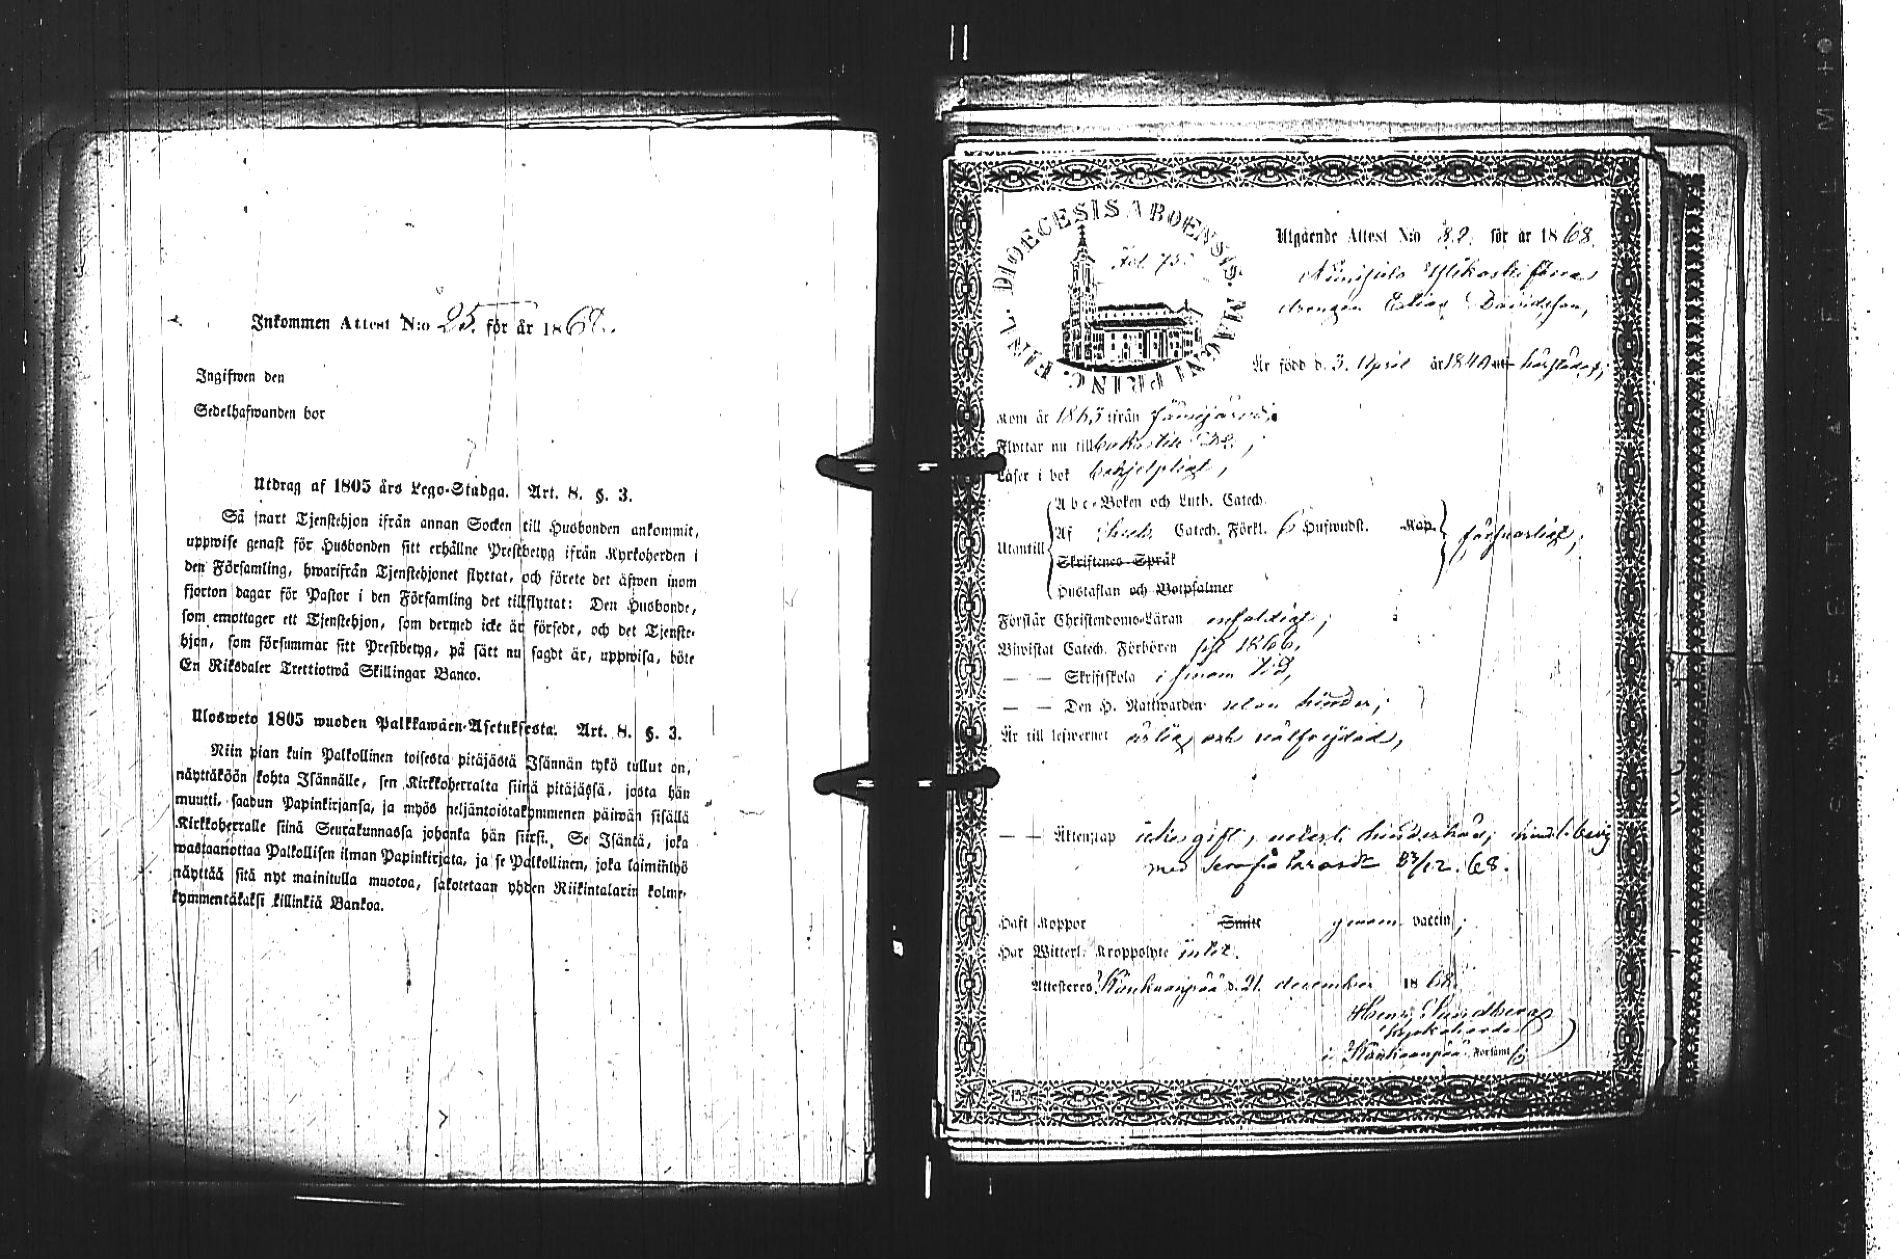 Inkommen Attest N:o 25. för år 186
Ingifwen den
Sedelhafwanden bor
Utdrag af 1805 års Lego-Stadga. Art. 8. §. 3.
Så snart Tjenstehjon ifrån annan Socken till Husbonden ankommit,
uppwise genast för Husbonden sitt erhållne Prestbetyg ifrån Kyrkoherden i
den Församling, hwarifrån Tjenstehjonet flyttat, och förete det äfwen inom
fjorton dagar för Pastor i den Församling det tillflyttat: Den Husbonde,
som emottager ett Tjenstehjon, som dermed icke är försedt, och det Tjenste-
hjon, som försummar sitt Prestbetyg, på sätt nu sagdt är, uppwisa, böte
En Riksdaler Trettiotwå Skillingar Banco.
Ulosweto 1805 wuoden Palkkawäen-Asetuksesta. Art. 8. §. 3.
Niin pian kuin Palkollinen toisesta pitäjästä Isännän tykö tullut on,
näyttäköön kohta Isännälle, sen Kirkkoherralta siinä pitäjässä, josta hän
muutti, saadun Papinkirjansa, ja myös neljäntoistakymmenen päiwän sisällä
Kirkkoherralle siinä Seurakunnassa johonka hän siirsi. Se Isäntä, joka
wastaanottaa Palkollisen ilman Papinkirjata, ja se Palkollinen, joka laiminlyö
näyttää sitä nyt mainitulla muotoa, sakotetaan yhden Riikintalarin kolme-
kymmentäkaksi killinkiä Bankoa.
FINL. DIOECESIS ABOENSIS. MAGNI PRINC.
Fol 73
Utgående Attest N:o 82. för år 1868.
drengen Elias Davidsson,
Är född d. 3. April år 1840 härstädes;
Kom år 1863 ifrån Jämijärvi.
Flyttar nu till
Läser i bok behjelpligt,
Utantill
Abc-Boken och Luth. Catech.
Af Catech. Förkl. 6 Hufwudst. Kap. försvarligt;
Skriftenes Språk
Hustaflan och Botpsalmer
Förstår Christendoms-Läran enfaldigt;
Biwistat Catech. Förhören sist 1866,
— — Skriftskola i sinom tid,
— — Den H. Nattwarden utan hinder;
Är till lefwernet ärlig och välfrejdad,
— — Äktenskap icke gift,
med Serafia 23/12. 68.
Haft Koppor Smitt genom vaccin;
Har Witterl. Kroppslyte intet.
Attesteras Kankaanpää d. 21. december 1868.
Sundberg
Kyrkoherde
i Kankaanpää Församl